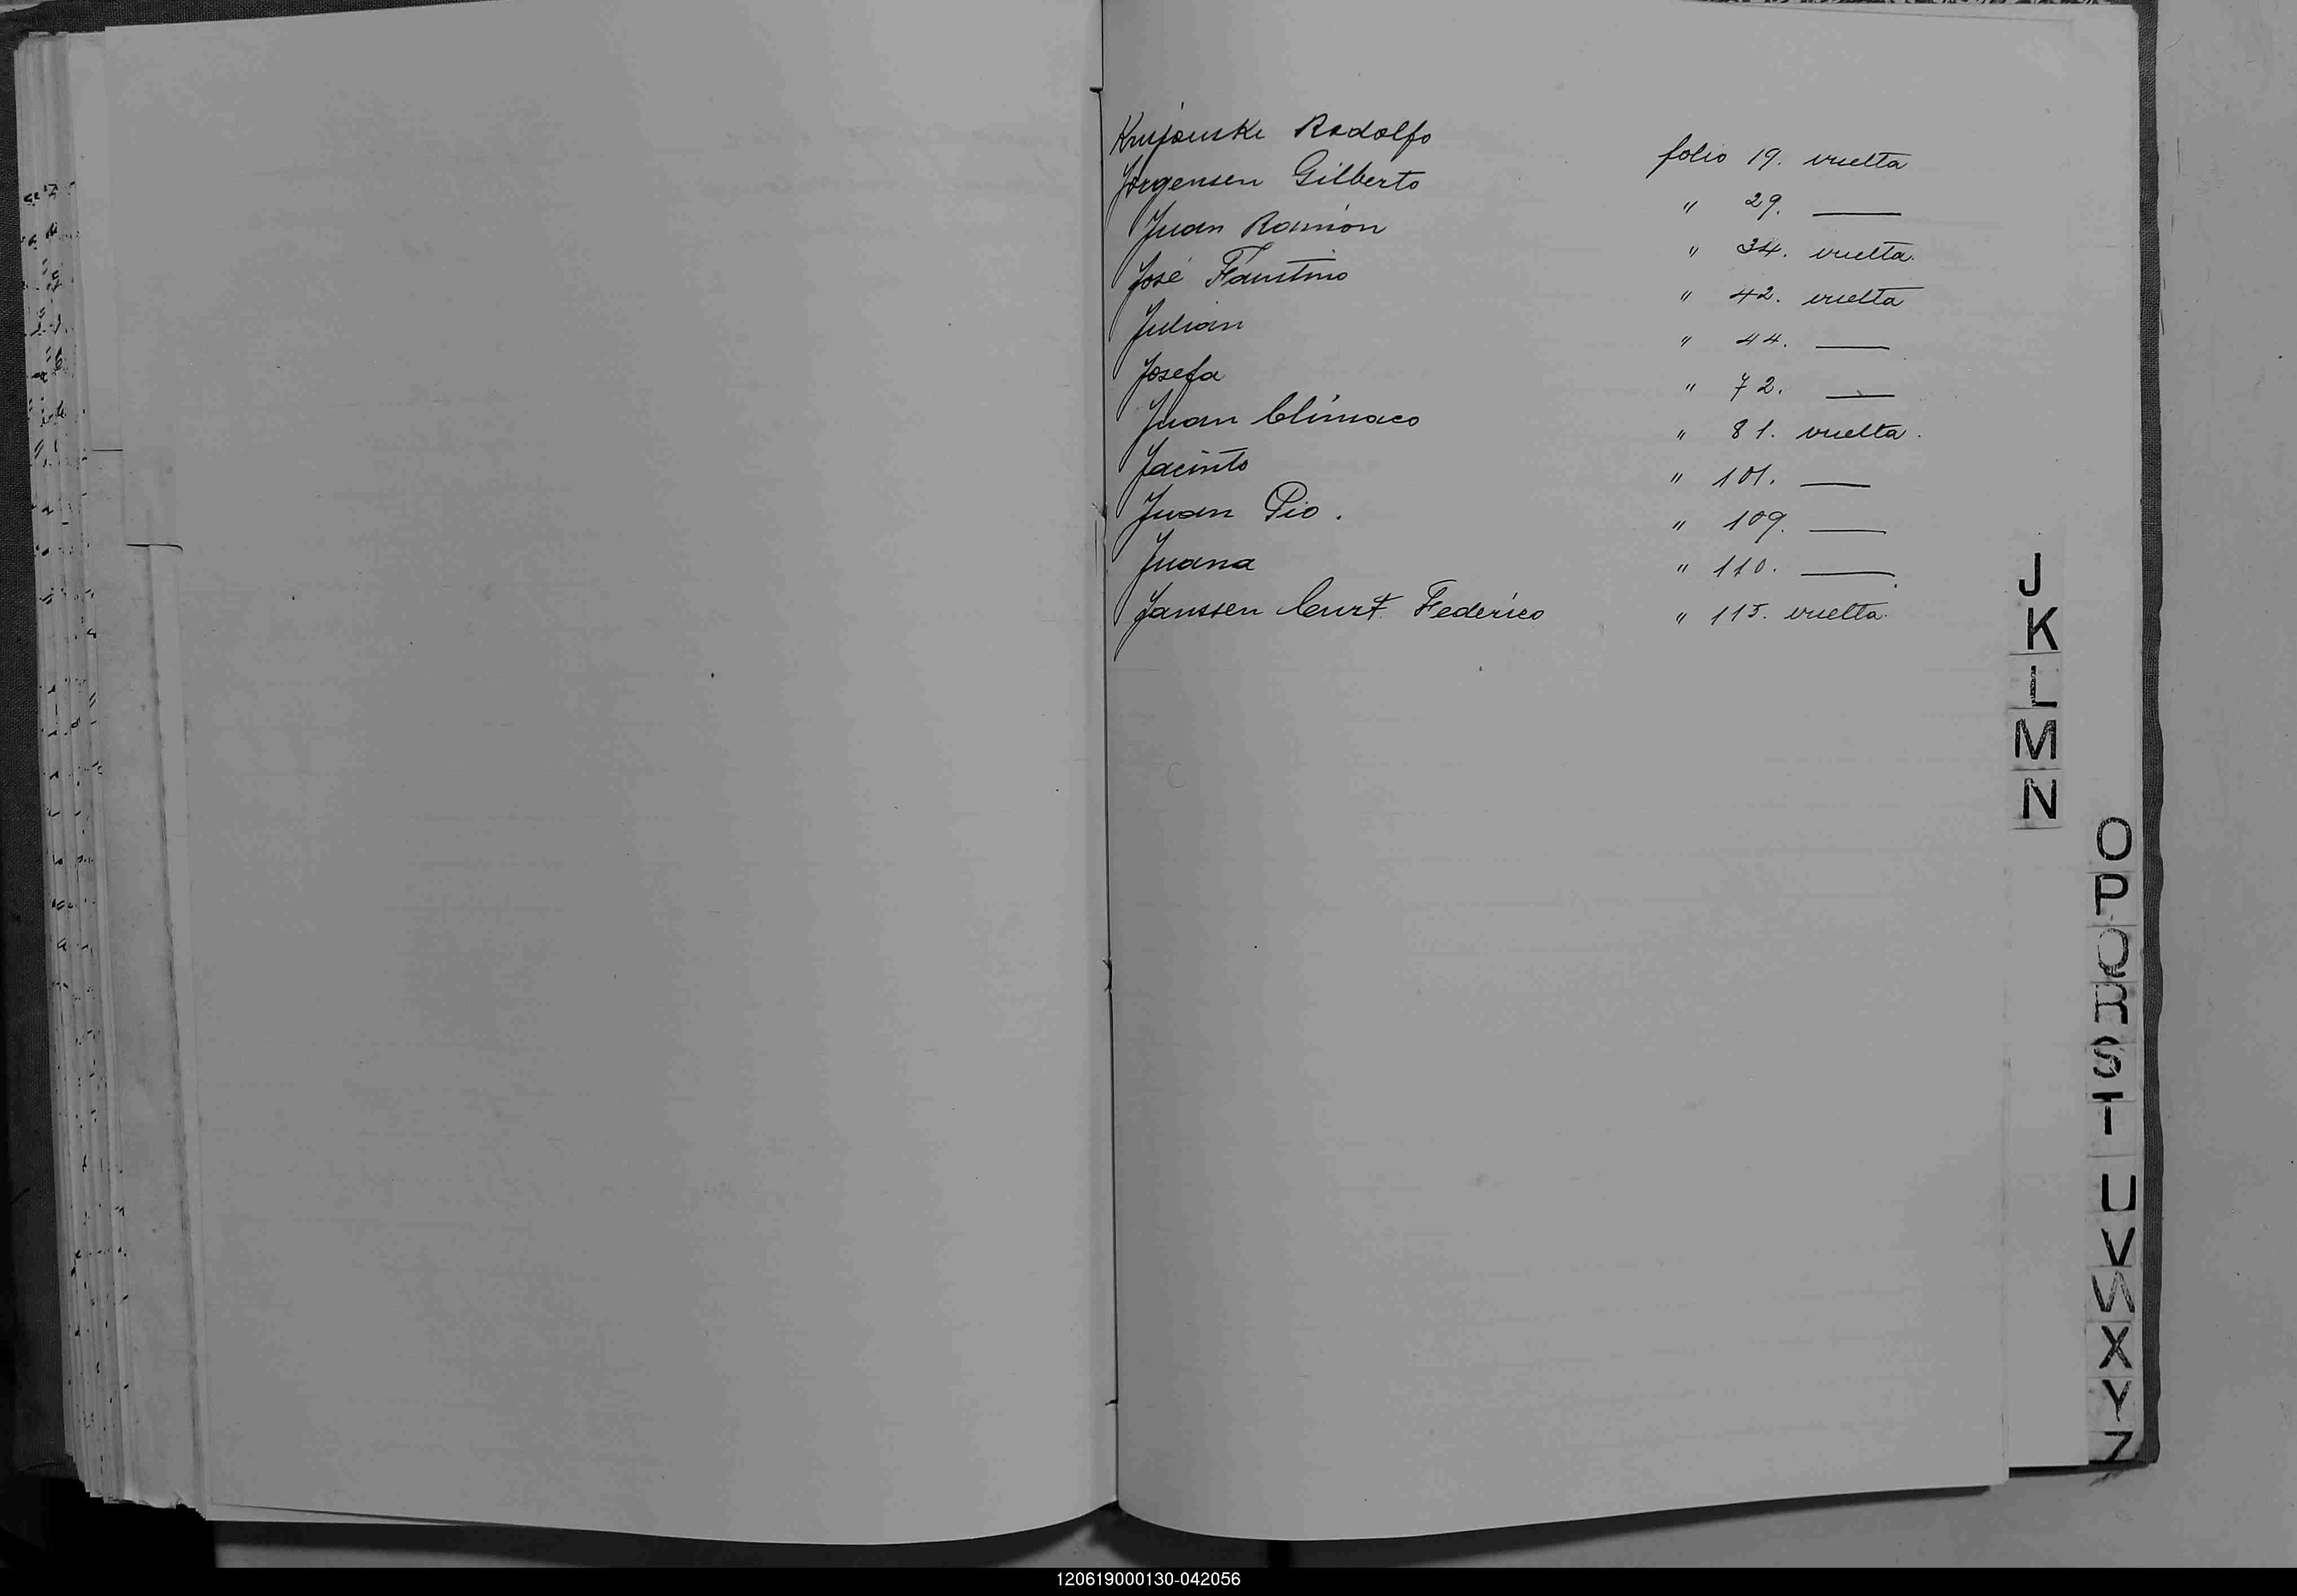 Rodolfo folio 19. vuelta
Jorgensen Gilberto " 29. —
Juan Ramón " 34. vuelta.
José Faustino " 42. vuelta
Julian " 44. —
Josefa " 72. —
Juan Climaco " 81. vuelta.
Jacinto " 101. —
Juan Pio. " 109. —
Juana " 110. —
Janssen Curt Federico " 115. vuelta.
J
K
L
M
N
O
P
Q
R
S
T
U
V
W
X
Y
Z
120619000130-042056